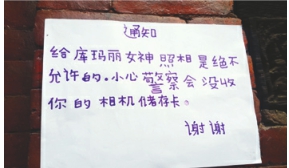 通知
给库玛丽女神照相是绝不
允许的.小心警察会没收
你的相机储存卡。
谢谢